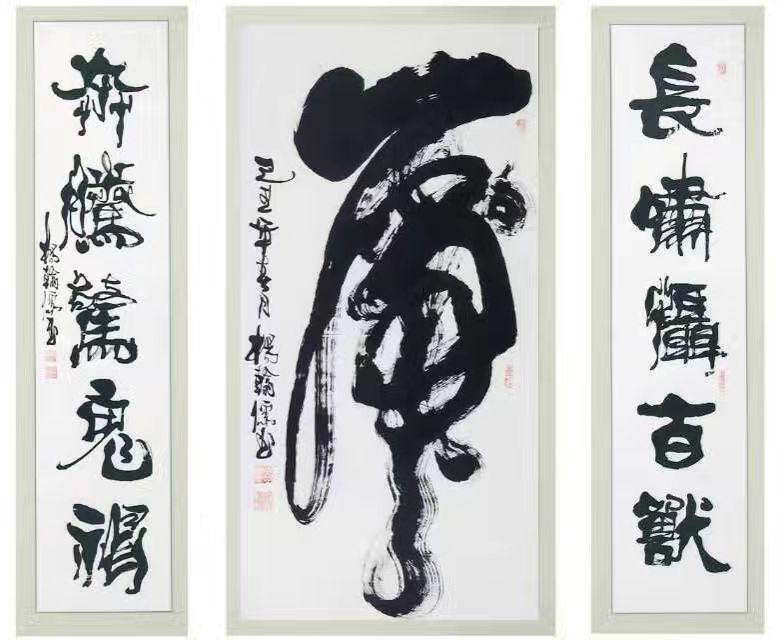 長嘯懾百獸
虎
己丑年春月 楊翰儒書
奔騰驚鬼神
楊翰儒書